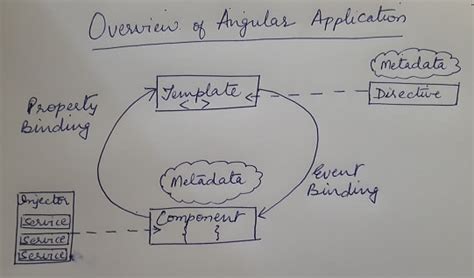 Overview of Angular Application
Metadata
Template
< >
Directive
Property
Binding
Metadata
Event
Binding
Injector
Service
Service
Service
Component
{ }